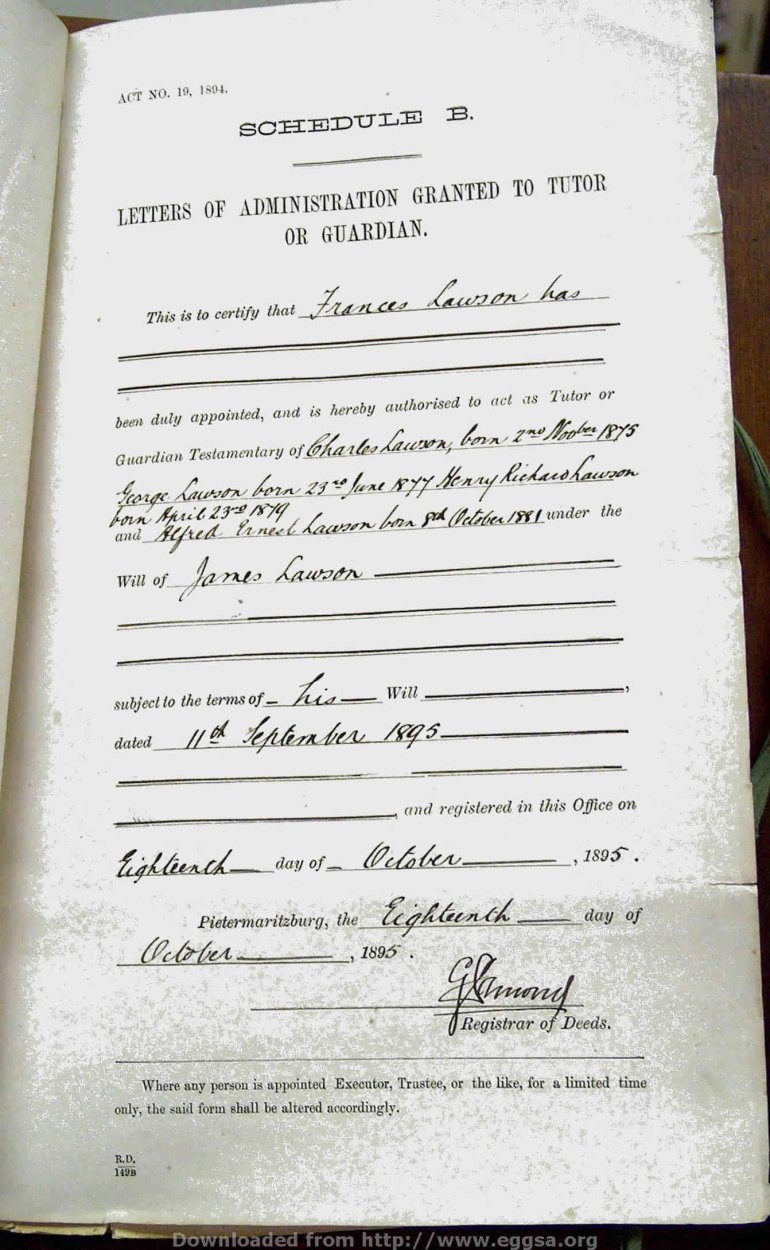 ACT NO. 19, 1894.
SCHEDULE B.
LETTERS OF ADMINISTRATION GRANTED TO TUTOR
OR GUARDIAN.
This is to certify that Frances Lawson has
been duly appointed, and is hereby authorised to act as Tutor or
Guardian Testamentary of Charles Lawson, born 2nd Novber 1875
George Lawson born 23rd June 1877 Henry Richard Lawson
born April 23rd 1879
and Alfred Ernest Lawson born 8th October 1881 under the
Will of James Lawson
subject to the terms of his Will ,
dated 11th September 1895
, and registered in this Office on
Eighteenth day of October , 1895.
Pietermaritzburg, the Eighteenth day of
October , 1895.
Registrar of Deeds.
Where any person is appointed Executor, Trustee, or the like, for a limited time
only, the said form shall be altered accordingly.
R.D.
149B
Downloaded from http://www.eggsa.org